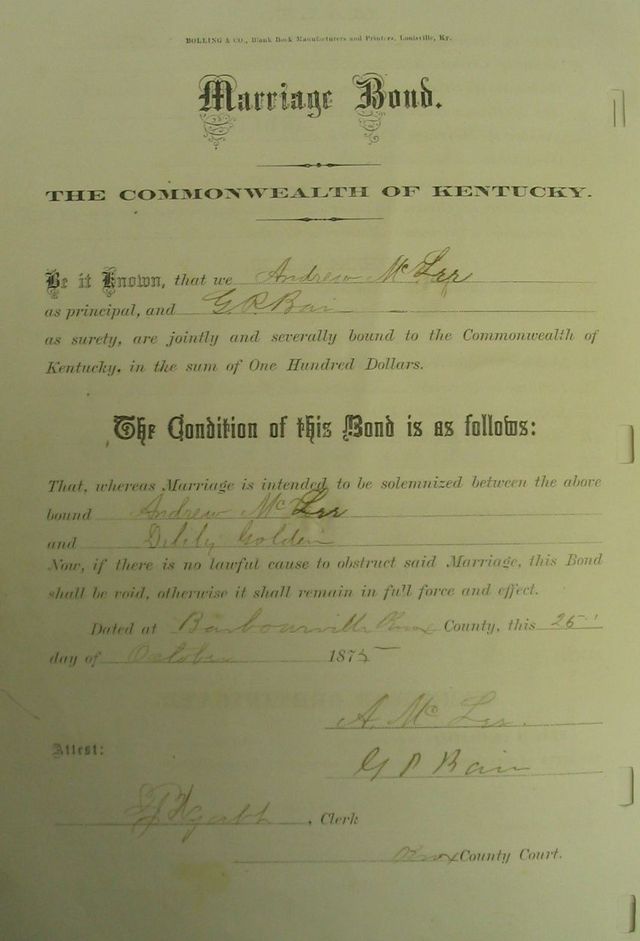 BOLLING & CO., Blank Book Manufacturers and Printers, Louisville, Ky.
Marriage Bond.
THE COMMONWEALTH OF KENTUCKY.
Be it Known, that we Andrew Mc Lee
as principal, and G R Bain
as surety, are jointly and severally bound to the Commonwealth of
Kentucky, in the sum of One Hundred Dollars.
The Condition of this Bond is as follows:
That, whereas Marriage is intended to be solemnized between the above
bound Andrew Mc Lee
and Golden
Now, if there is no lawful cause to obstruct said Marriage, this Bond
shall be void, otherwise it shall remain in full force and effect.
Dated at Barbourville Knox County, this 25
day of October 1875
A. Mc Lee.
Attest:
G R Bain
, Clerk
Knox County Court.